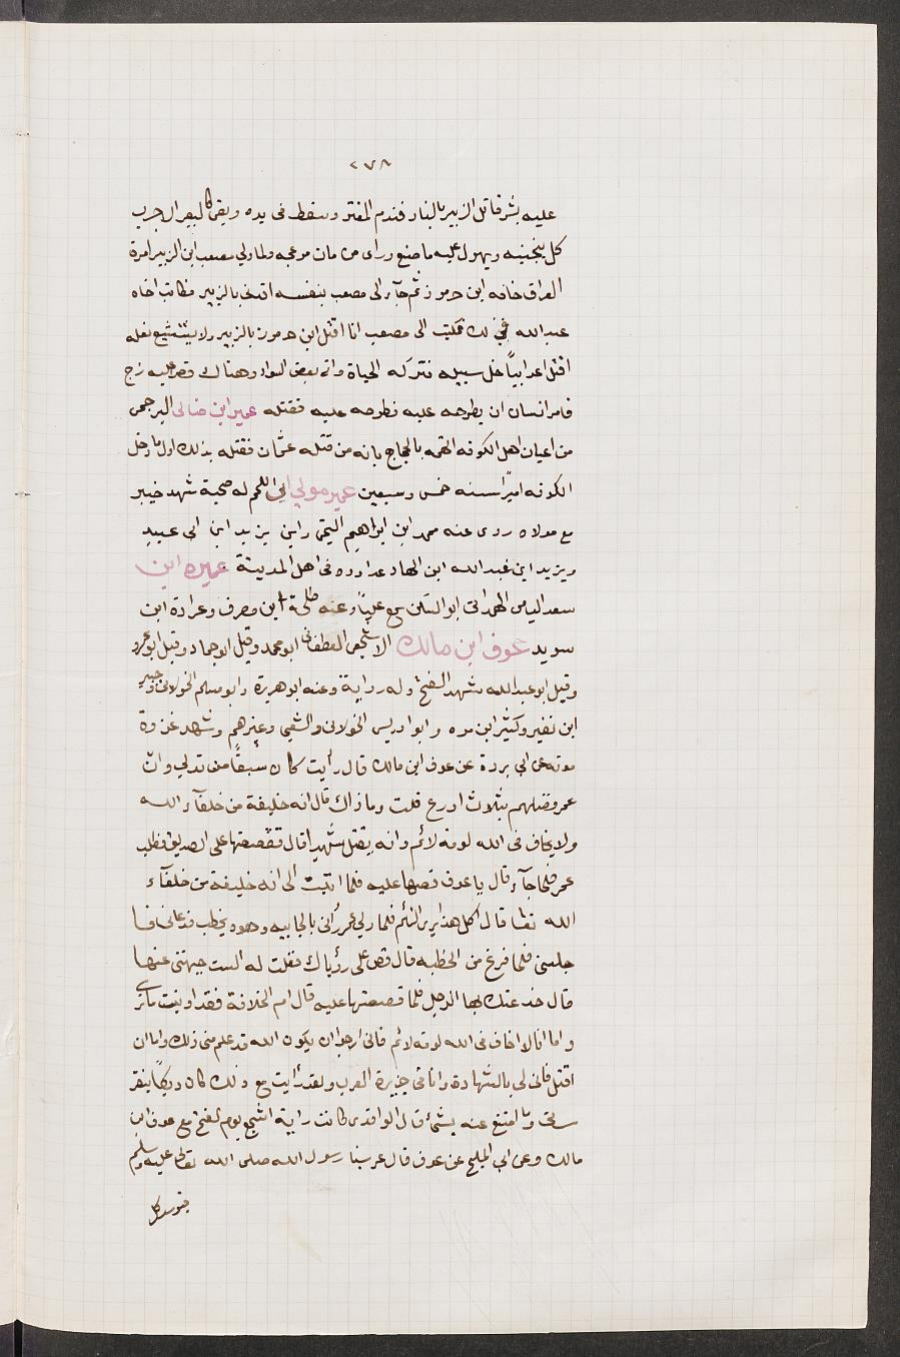 ٢٧٨
عليه بشر قاتل الزبير بالنار فندم المغتر وسقط فى يده وبقى كالبعير الاجرب
كل يتجنبه ويهول عليه ما صنع وراى من مات موعجه ولما ولي مصعب ابن الزبير امرة
العراق خافه ابن جرموز ثم جآء الى مصعب بنفسه اقتلنى بالزبير فكاتب اخاه
عبد الله فى ذلك فكتب الى مصعب انا اقتل ابن جرموز بالزبير ولا بشسع نعله
اقتل اعرابياً خل سبيله فتركه الحياة واتى بعض السواد وهناك قصر عليه زج
فامر انسان ان يطرحه عليه فطرحه عليه فقتله عمير ابن ضابى البرجمى
من اعيان اهل الكوفه اتهمه الحجاج بانه من قتله عثمان فقتله بذلك اول ما دخل
الكوفه اميراً سنه خمس وسبعين عمير مولى ابي اللحم له صحبة شهد خيبر
مع مولاه روى عنه محمد ابن ابراهيم التيمى وابن يزيد ابن ابى عبيد
ويزيد ابن عبد الله ابن الهاد عداده فى اهل المدينة عميره ابن
سعد اليامى الهمدانى ابو السكن سمع علياً وعنه طلحة ابن مصرف وعرادة ابن
سويد عوف ابن مالك الاشجعى الغطفانى ابو محمد وقيل ابو حماد وقيل ابو عمرو
وقيل ابو عبد الله شهد الفتح وله رواية وعنه ابو هريرة وابو مسلم الخولانى وجبير
ابن نفير وكثير ابن مره وابو ادريس الخولانى والشعبى وغيرهم وشهد غزوة
موته عن ابي بردة عن عوف ابن مالك قال رأيت كان سبباً من تدلي وان
عمر فضلهم بثلاث اذرع قلت وما ذاك قال انه خليفة من خلفآء الله
ولا يخاف فى الله لومة لائم وانه يقتل شهيدا قال فقصصتها على الصديق فطلب
عمر فلما جآء قال يا عوف قصها عليه فلما اتيت الى انه خليفة من خلفآء
الله تعا قال اكل هذا يرى النائم فلما ولي عمر رآنى بالجابيه وهو يخطب فدعانى فا
جلسنى فلما فرغ من الخطبه قال قص على رؤياك فقلت له الست جبهتنى عنها
قال خدعتك ايها الرجل فلما قصصتها عليه قال ام الخلافة فقد اوتيت ما ترى
واما انا لا اخاف فى الله لومة لائم فانى ارجو ان يكون الله قد علم منى ذلك واما ان
اقتل فانى لي بالشهادة وانا فى جزيرة العرب ولقد رأيت مع ذلك كان ديكاً ينقر
سرتى وما امتنع عنه بشئ قال الواقدى كانت راية اشجع يوم الفتح مع عوف ابن
مالك وعن ابي المليح عن عوف قال عرس بنا رسول الله صلى الله تعالى عليه وسلم
فتوسد كل